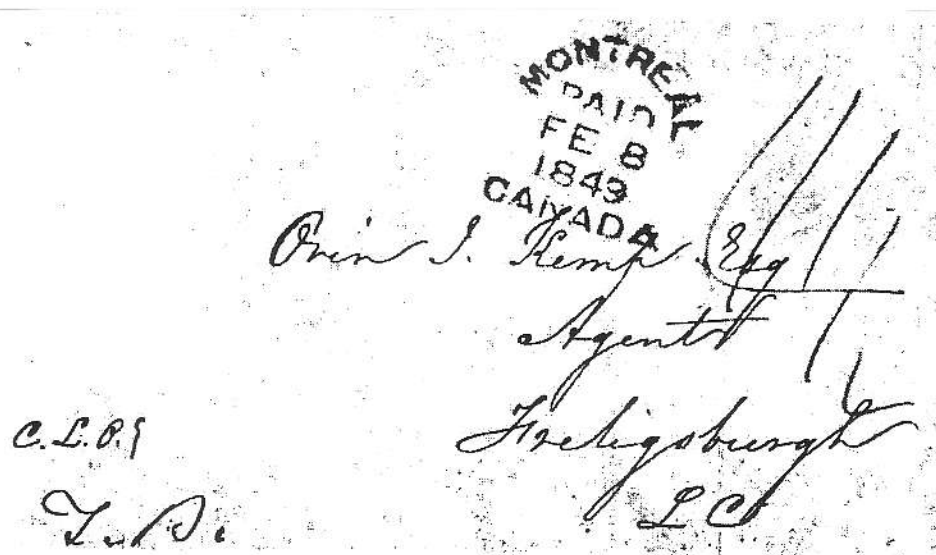 MONTREAL
PAID
FE 8
1849
CANADA
Orin J. Kemp Esq
Agent
Freligsburgh
L C
C.L.P.